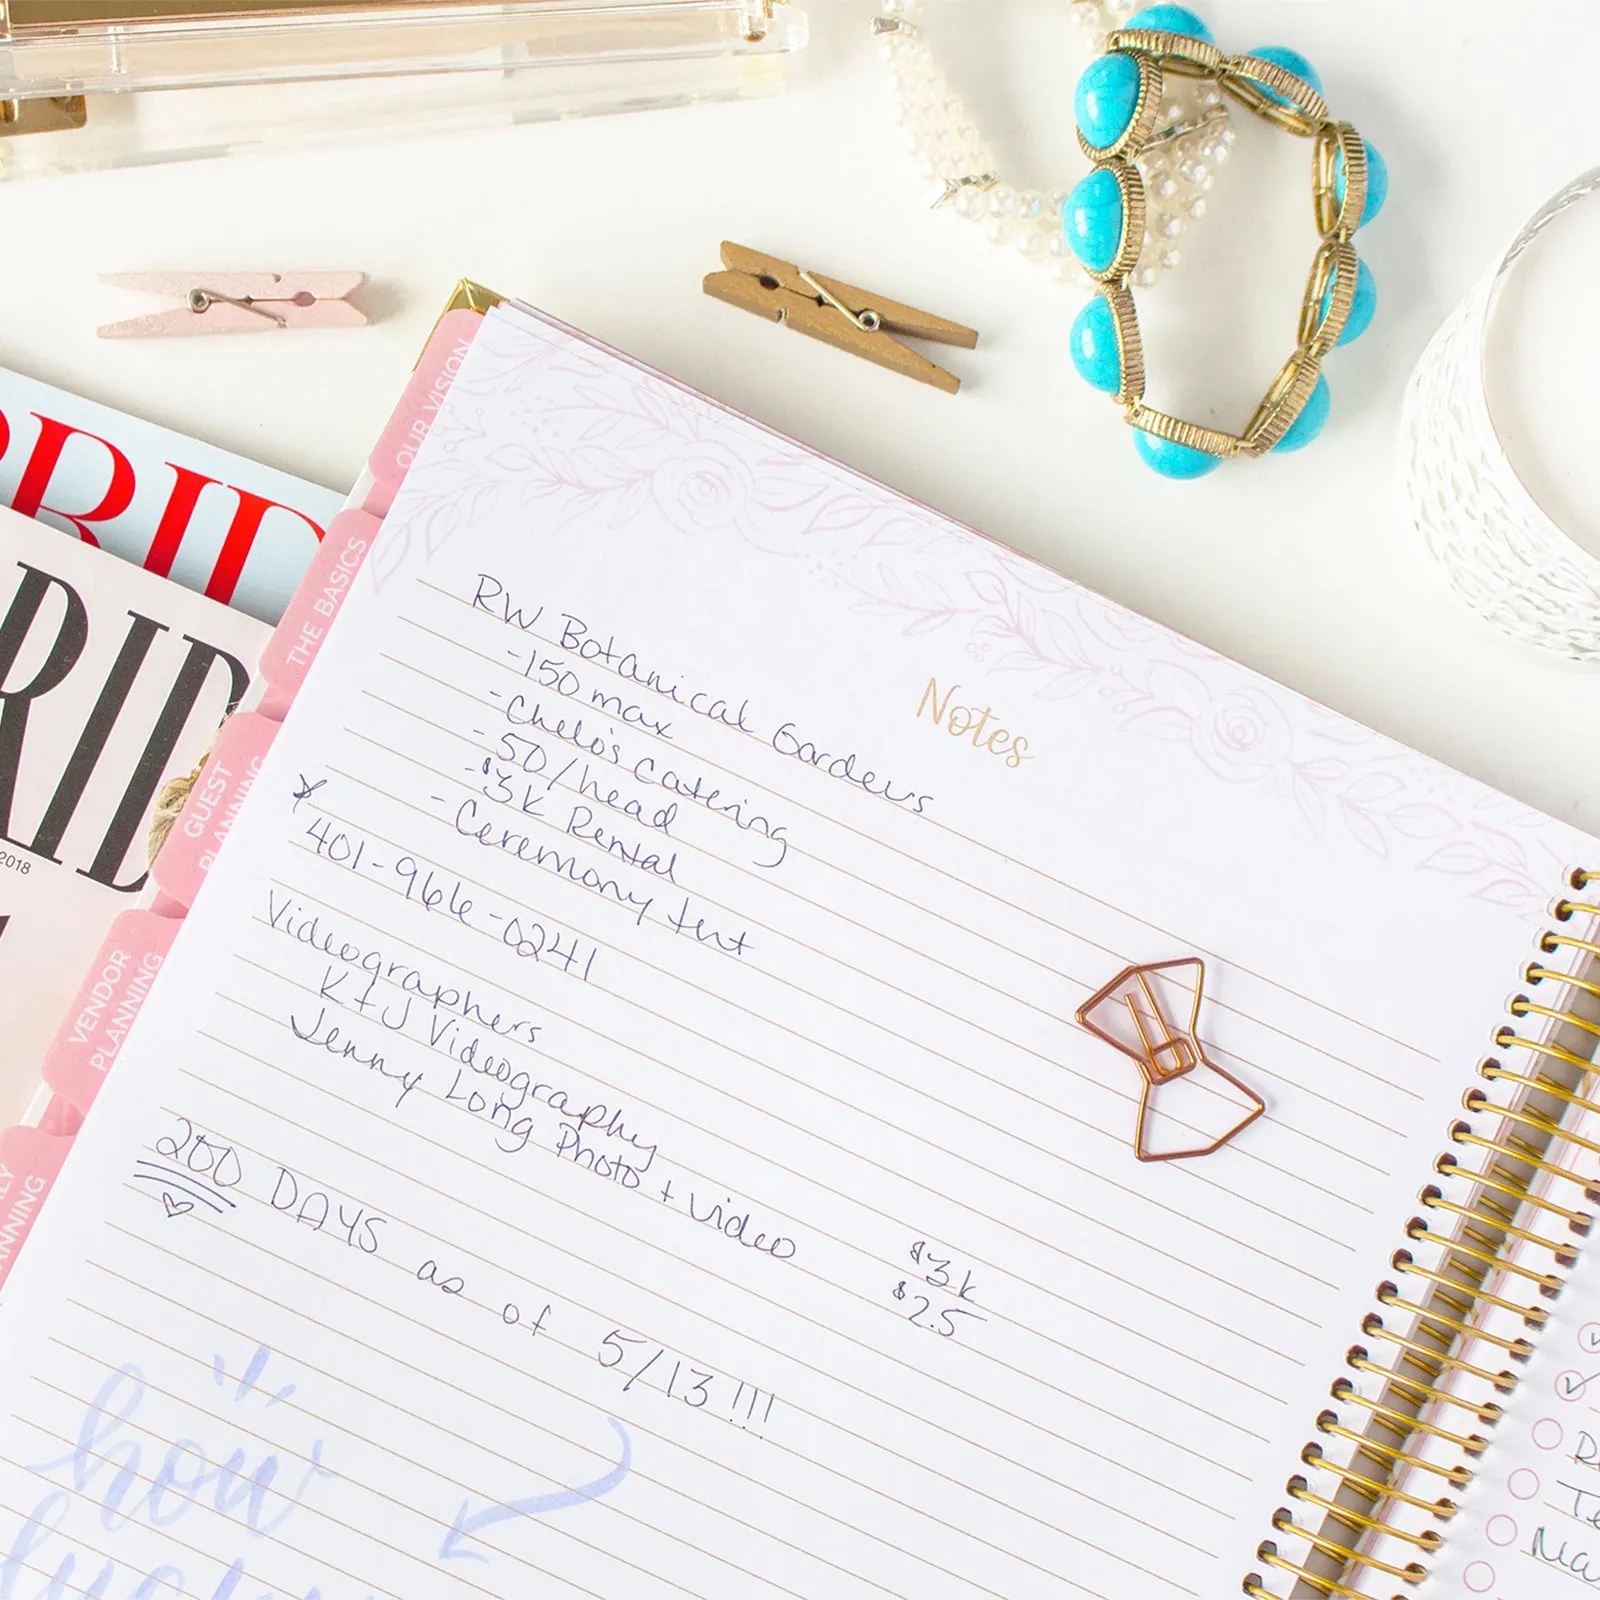 BRID
RID
2018
OUR VISION
THE BASICS
GUEST
PLANNING
VENDOR
PLANNING
Notes
RW Botanical Gardens
-150 max
- Chelo's catering
- 50/head
- $3k Rental
- Ceremony tent
401-966-0241
Videographers
K + J Videography $3k
Jenny Long Photo + Video $2.5
200 DAYS as of 5/13!!!
how
lucky